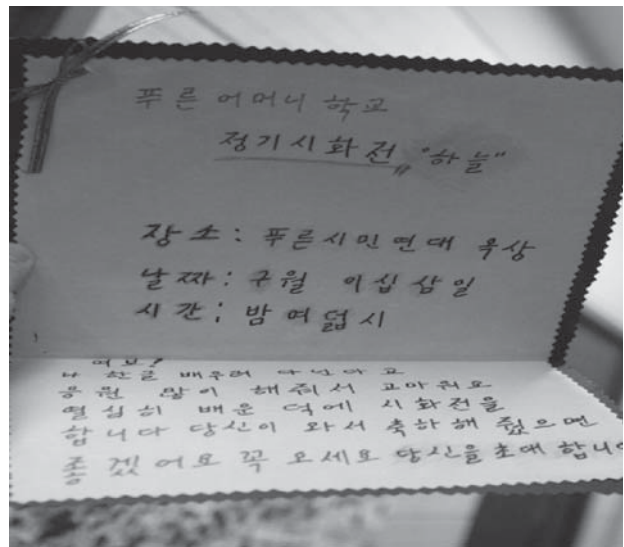 푸른 어머니 학교
정기시화전 "하늘"
장소: 푸른시민연대 옥상
날짜: 구월 이십삼일
시간: 밤 여덟시
여보!
나 한글 배우러 다닌다고
응원 많이 해줘서 고마워요
열심히 배운 덕에 시화전을
합니다 당신이 와서 축하해 줬으면
좋겠어요 꼭 오세요 당신을 초대 합니다